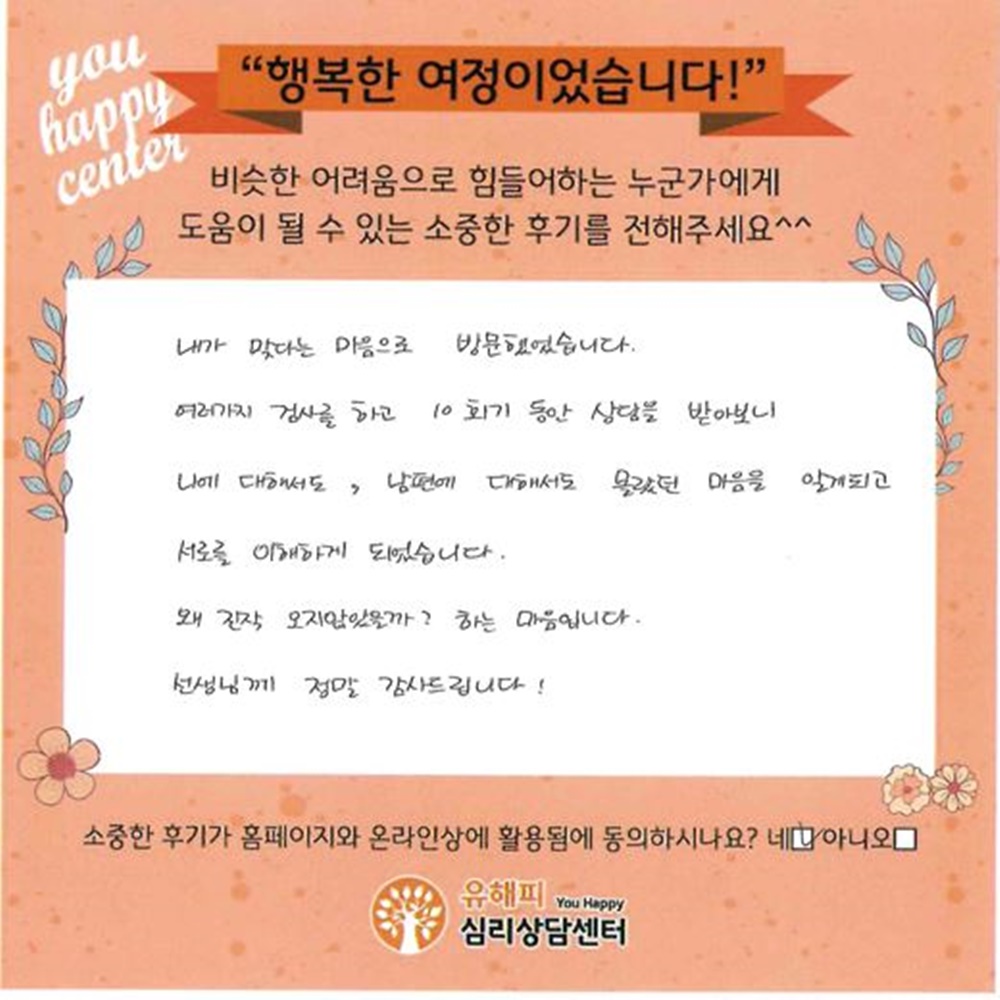 you
happy
center
“행복한 여정이었습니다!”
비슷한 어려움으로 힘들어하는 누군가에게
도움이 될 수 있는 소중한 후기를 전해주세요^^
내가 맞다는 마음으로 방문했었습니다.
여러가지 검사를 하고 10 회기 동안 상담을 받아보니
나에 대해서도, 남편에 대해서도 몰랐던 마음을 알게되고
서로를 이해하게 되었습니다.
왜 진작 오지않았을까? 하는 마음입니다.
선생님께 정말 감사드립니다!
소중한 후기가 홈페이지와 온라인상에 활용됨에 동의하시나요? 네 아니오
유해피 You Happy
심리상담센터